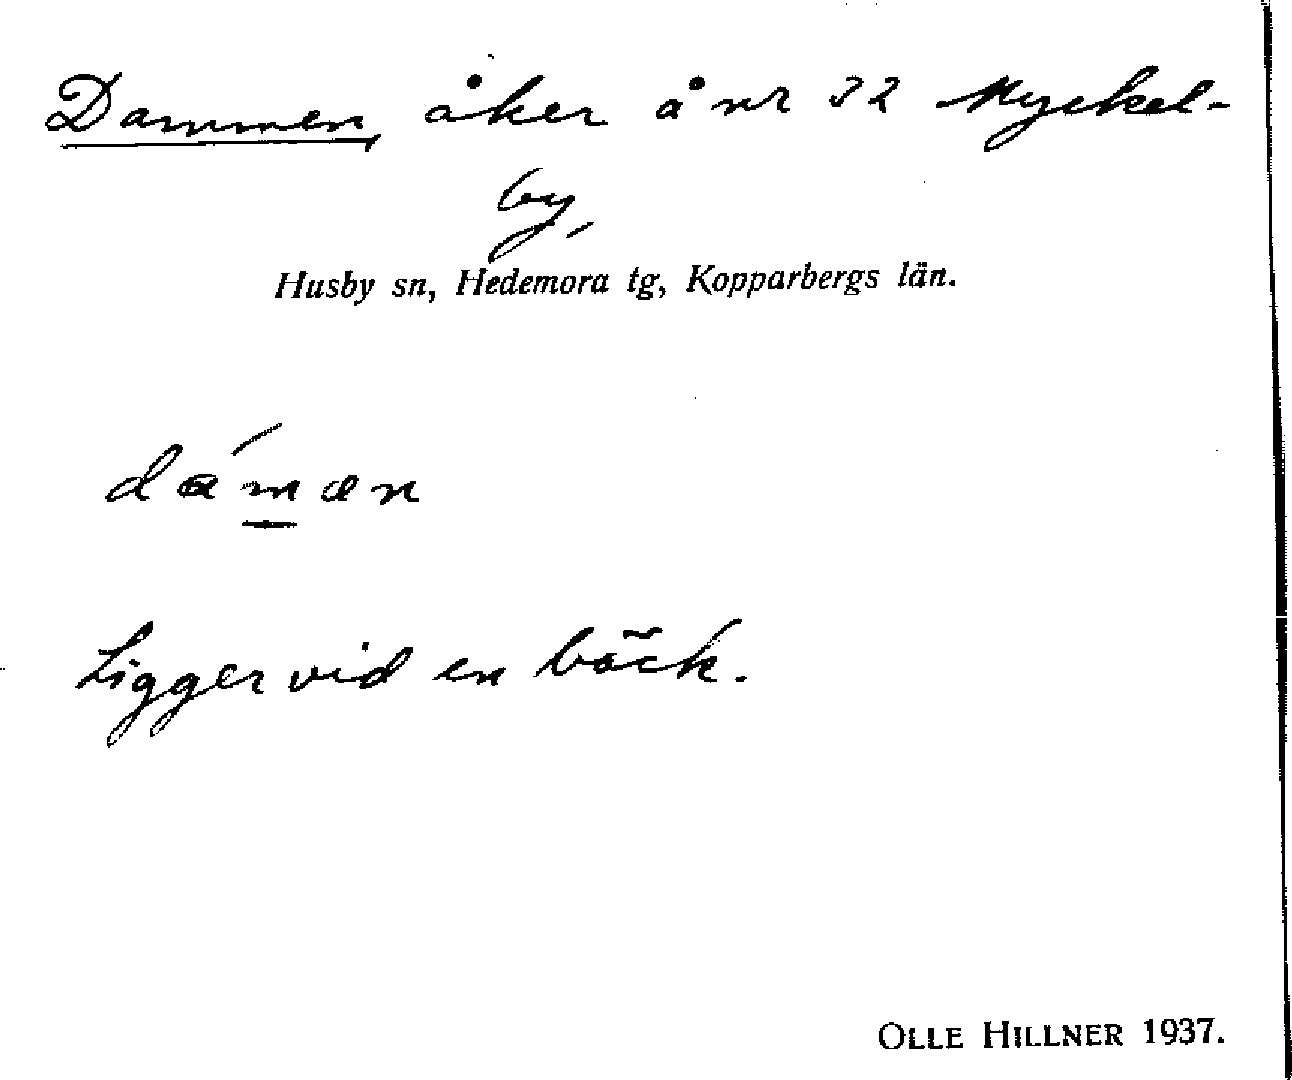 Dammen, åker å nr 32 Myckel-
by,
Husby sn, Hedemora tg, Kopparbergs län.
dám̲æn
Ligger vid en bäck.
OLLE HILLNER 1937.